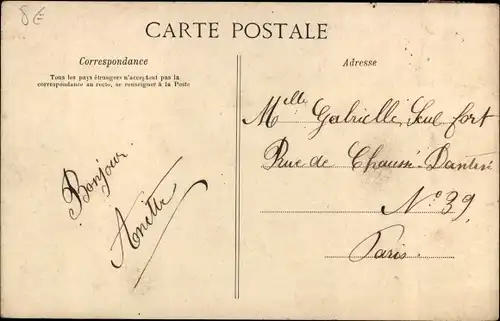 8€
CARTE POSTALE
Correspondance
Tous les pays étrangers n'acceptent pas la
correspondance au recto, se renseigner à la Poste
Bonjour
Anitte
Adresse
Melle Gabrielle Seul fort
Rue de Chaussi Dantin
No 39
Paris